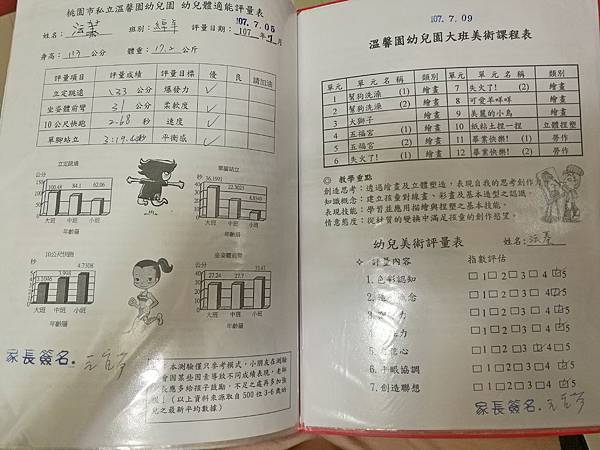 桃園市私立溫馨園幼兒園 幼兒體適能評量表
107.7.05
姓名: 班別: 綿羊 評量日期: 107年7月
身高: 113 公分 體重: 17.2 公斤
評量項目 評量成績 評量目標 優 良 請加油
立定跳遠 133 公分 爆發力 ✓
坐姿體前彎 31 公分 柔軟度 ✓
10公尺快跑 2.68 秒 速度 ✓
單腳站立 秒 平衡感 ✓
立定跳遠
公分
150
100
50
0
100.48 84.1 62.06
大班 中班 小班
年齡層
單腳站立
秒
40
30
20
10
0
36.1591
22.3023
8.8349
大班 中班 小班
年齡層
10公尺快跑
秒
3.9
4.7308
大班 中班 小班
年齡層
坐姿體前彎
公分
27.24 27.7
大班 中班 小班
年齡層
家長簽名.
本測驗僅只參考模式,小朋友在測驗
會因某些因素導致不同成績表現,老師
長應多給孩子鼓勵,不足之處再多加強
(以上資料來源取自500位3-6歲幼
兒之最新平均數據)
107.7.09
溫馨園幼兒園大班美術課程表
單元 單元名稱 類別 單元 單元名稱 類別
1 幫狗洗澡 (1) 繪畫 7 失火了! (2) 繪畫
2 幫狗洗澡 (2) 繪畫 8 可愛羊咩咩 繪畫
3 大獅子 繪畫 9 美麗的小鳥 繪畫
4 五福宮 (1) 繪畫 10 紙粘土捏一捏 立體捏塑
5 五福宮 (2) 繪畫 11 畢業快樂! (1) 勞作
6 失火了! (1) 繪畫 12 畢業快樂! (2) 勞作
◎ 教學重點
創造思考:透過繪畫及立體塑造,表現自我的思考創作
知識概念:建立孩童對線畫、彩畫及基本造型之認識。
表現技能:學習並應用描繪與捏塑之基本技能。
情意態度:從材質的變換中滿足孩童的創作慾望。
幼兒美術評量表 姓名:
評量內容 指數評估
1.色彩認知 □1□2□3□4☑5
2. 概念 □1□2□3□4☑5
3. □1□2□3□4☑5
4. 力 □1□2□3□4☑5
5. 意心 □1□2□3☑4□5
6.手眼協調 □1□2□3□4☑5
7.創造聯想 □1□2□3□4☑5
家長簽名.